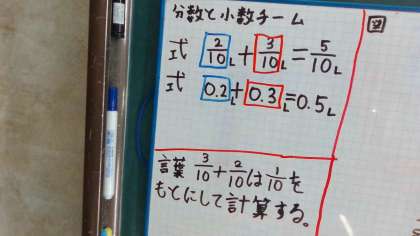 分数と小数チーム
図
式 2/10L+3/10L=5/10L
式 0.2L+0.3L=0.5L
言葉 3/10+2/10は1/10を
もとにして計算する。